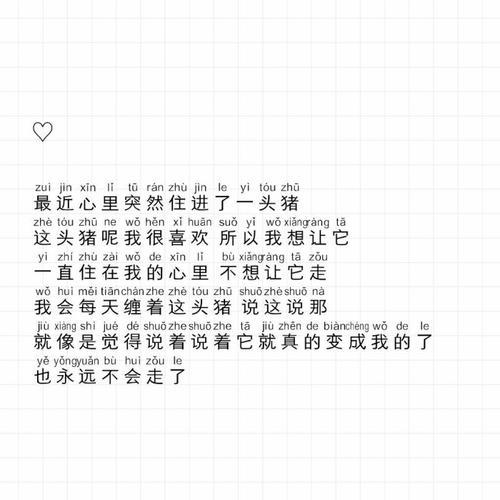 ♡
zuì jìn xīn lǐ tū rán zhù jìn le yì tóu zhū
最近心里突然住进了一头猪
zhè tóu zhū ne wǒ hěn xǐ huān suǒ yǐ wǒ xiǎng ràng tā
这头猪呢我很喜欢 所以我想让它
yì zhí zhù zài wǒ de xīn lǐ bù xiǎng ràng tā zǒu
一直住在我的心里 不想让它走
wǒ huì měi tiān chán zhe zhè tóu zhū shuō zhè shuō nà
我会每天缠着这头猪 说这说那
jiù xiàng shì jué dé shuō zhe shuō zhe tā jiù zhēn de biàn chéng wǒ de le
就像是觉得说着说着它就真的变成我的了
yě yǒng yuǎn bù huì zǒu le
也永远不会走了